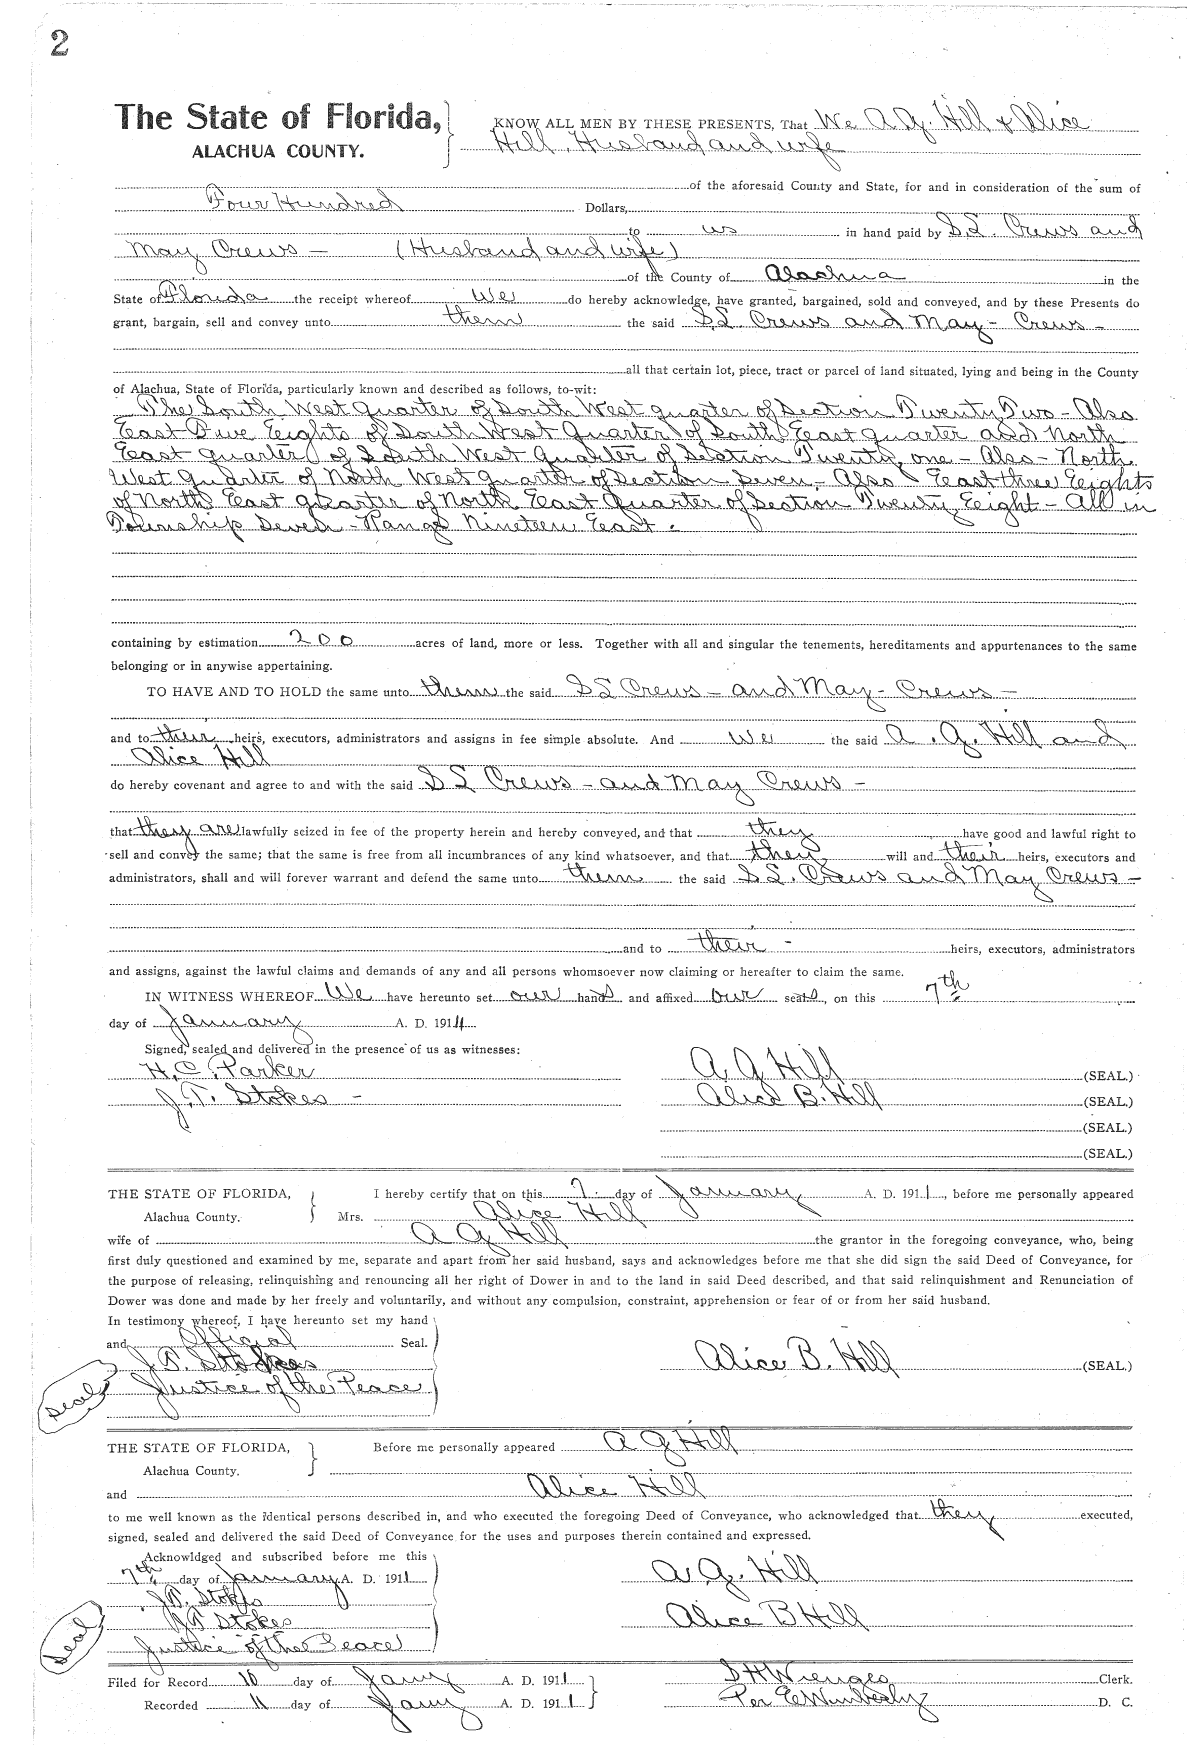 2
The State of Florida,
ALACHUA COUNTY.
KNOW ALL MEN BY THESE PRESENTS, That We A. G. Hill & Alice
Hill, Husband and wife
of the aforesaid County and State, for and in consideration of the sum of
Four Hundred Dollars,
to us in hand paid by S.L. Crews and
May Crews — (Husband and wife)
of the County of Alachua in the
State of Florida the receipt whereof We do hereby acknowledge, have granted, bargained, sold and conveyed, and by these Presents do
grant, bargain, sell and convey unto them the said S.L. Crews and May - Crews -
all that certain lot, piece, tract or parcel of land situated, lying and being in the County
of Alachua, State of Florida, particularly known and described as follows, to-wit:
The South West Quarter of South West quarter of Section Twenty Two - Also
East Five Eights of South West Quarter of South East quarter and North
East quarter of South West Quarter of Section Twenty one - Also - North
West Quarter of North West Quarter of Section Seven - Also East three Eights
of North East quarter of North East Quarter of Section Twenty Eight - All in
Township Seven - Range Nineteen East.
containing by estimation 200 acres of land, more or less. Together with all and singular the tenements, hereditaments and appurtenances to the same
belonging or in anywise appertaining.
TO HAVE AND TO HOLD the same unto them the said S L Crews - and May - Crews -
and to their heirs, executors, administrators and assigns in fee simple absolute. And We the said A. G. Hill and
Alice Hill
do hereby covenant and agree to and with the said S L Crews - and May Crews -
that they are lawfully seized in fee of the property herein and hereby conveyed, and that they have good and lawful right to
sell and convey the same; that the same is free from all incumbrances of any kind whatsoever, and that they will and their heirs, executors and
administrators, shall and will forever warrant and defend the same unto them the said S L. Crews and May Crews -
and to their - heirs, executors, administrators
and assigns, against the lawful claims and demands of any and all persons whomsoever now claiming or hereafter to claim the same.
IN WITNESS WHEREOF We have hereunto set our hands and affixed our seals, on this 7th
day of January A. D. 1911
Signed, sealed and delivered in the presence of us as witnesses:
H. C. Parker A G Hill (SEAL.)
J. T. Stokes - Alice B. Hill (SEAL.)
(SEAL.)
(SEAL.)
THE STATE OF FLORIDA, I hereby certify that on this 7. day of January A. D. 1911, before me personally appeared
Alachua County. Mrs. Alice Hill
wife of A G Hill the grantor in the foregoing conveyance, who, being
first duly questioned and examined by me, separate and apart from her said husband, says and acknowledges before me that she did sign the said Deed of Conveyance, for
the purpose of releasing, relinquishing and renouncing all her right of Dower in and to the land in said Deed described, and that said relinquishment and Renunciation of
Dower was done and made by her freely and voluntarily, and without any compulsion, constraint, apprehension or fear of or from her said husband.
In testimony whereof, I have hereunto set my hand
and Official Seal.
J. T. Stokes Alice B. Hill (SEAL.)
Seal Justice of the Peace
THE STATE OF FLORIDA, Before me personally appeared A G Hill
Alachua County.
and Alice Hill
to me well known as the identical persons described in, and who executed the foregoing Deed of Conveyance, who acknowledged that they executed,
signed, sealed and delivered the said Deed of Conveyance for the uses and purposes therein contained and expressed.
Acknowldged and subscribed before me this
7th day of January A. D. 1911 A. G. Hill
J.T. Stokes
J T Stokes Alice B Hill
Seal Justice of the Peace
Filed for Record 10 day of Jany A. D. 1911 S H Wienges Clerk.
Recorded 11 day of Jany A. D. 1911 Per E Wimberly D. C.